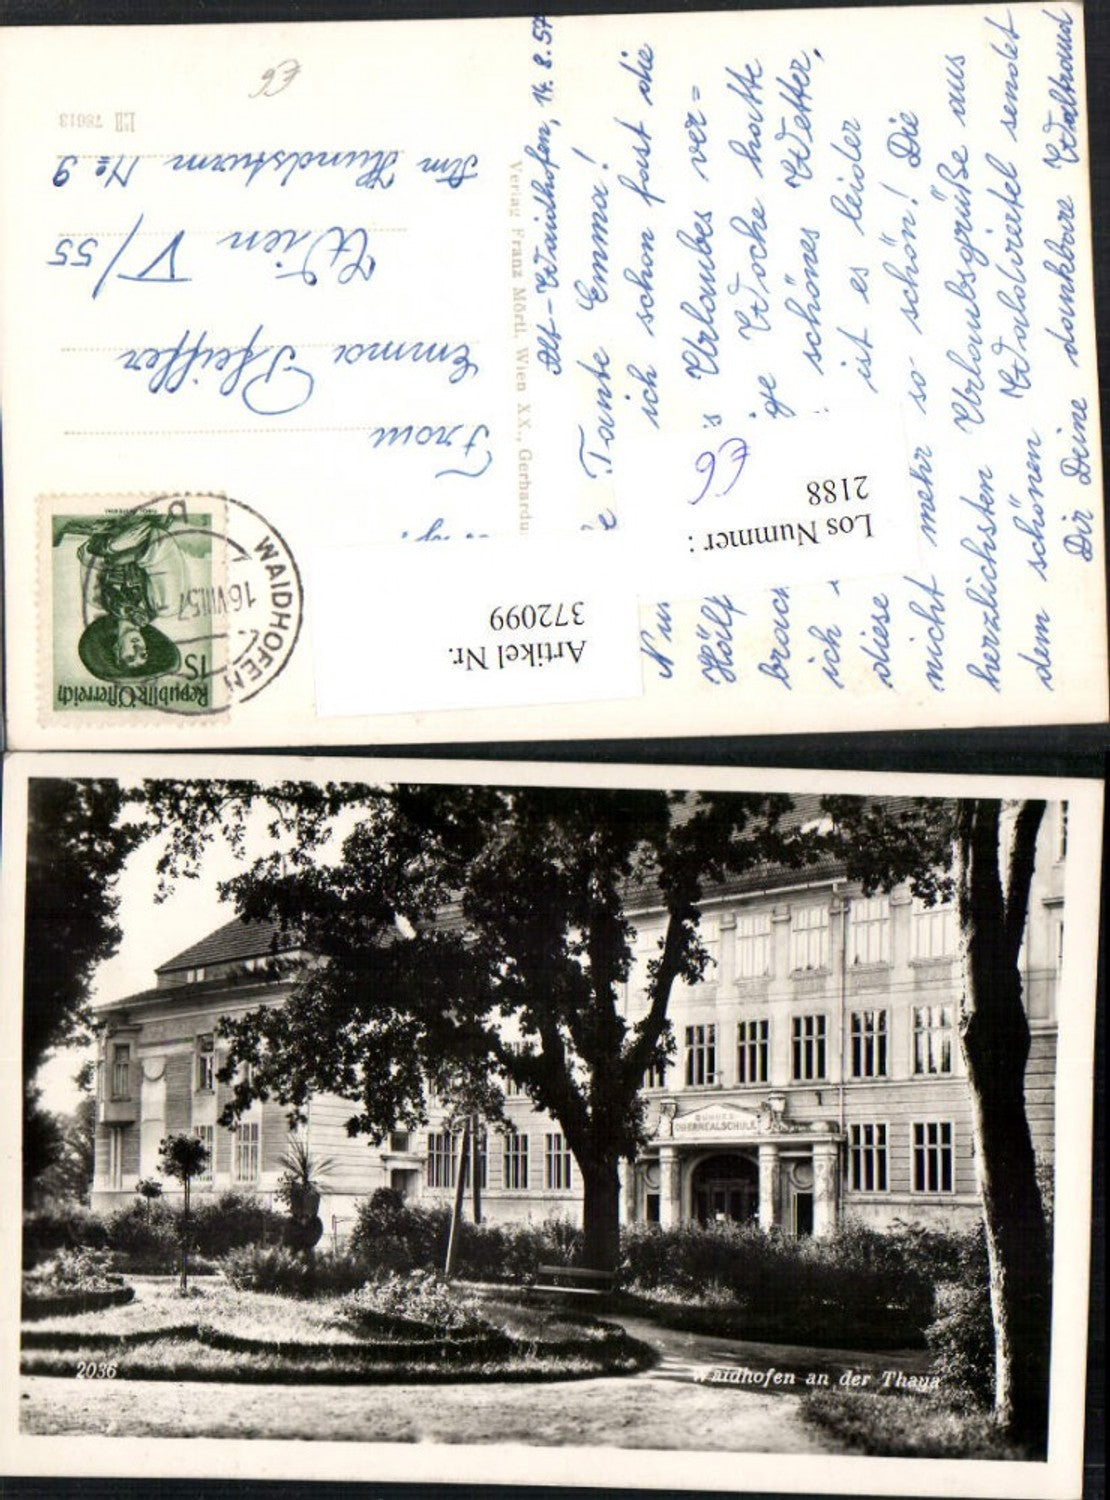 Alt-Waidhofen, 14.8.57
Tante Emma!
ich schon fast die
Hälf Urlaubes ver=
brach ge Woche hatte
ich schönes Wetter,
diese ist es leider
nicht mehr so schön! Die
herzlichsten Urlaubsgrüße aus
dem schönen Waldviertel sendet
Dir Deine dankbare Waltraud
Verlag Franz Mörtl, Wien XX., Gerhardu
Republik Österreich
1 S
WAIDHOFEN
16.VIII.57
Frau
Emma Pfeiffer
Wien V/55
Am Hundsturm No 9
78613
Artikel Nr.
372099
Los Nummer:
2188
€6
€6
BUNDES
OBERREALSCHULE
2036
Waidhofen an der Thaya